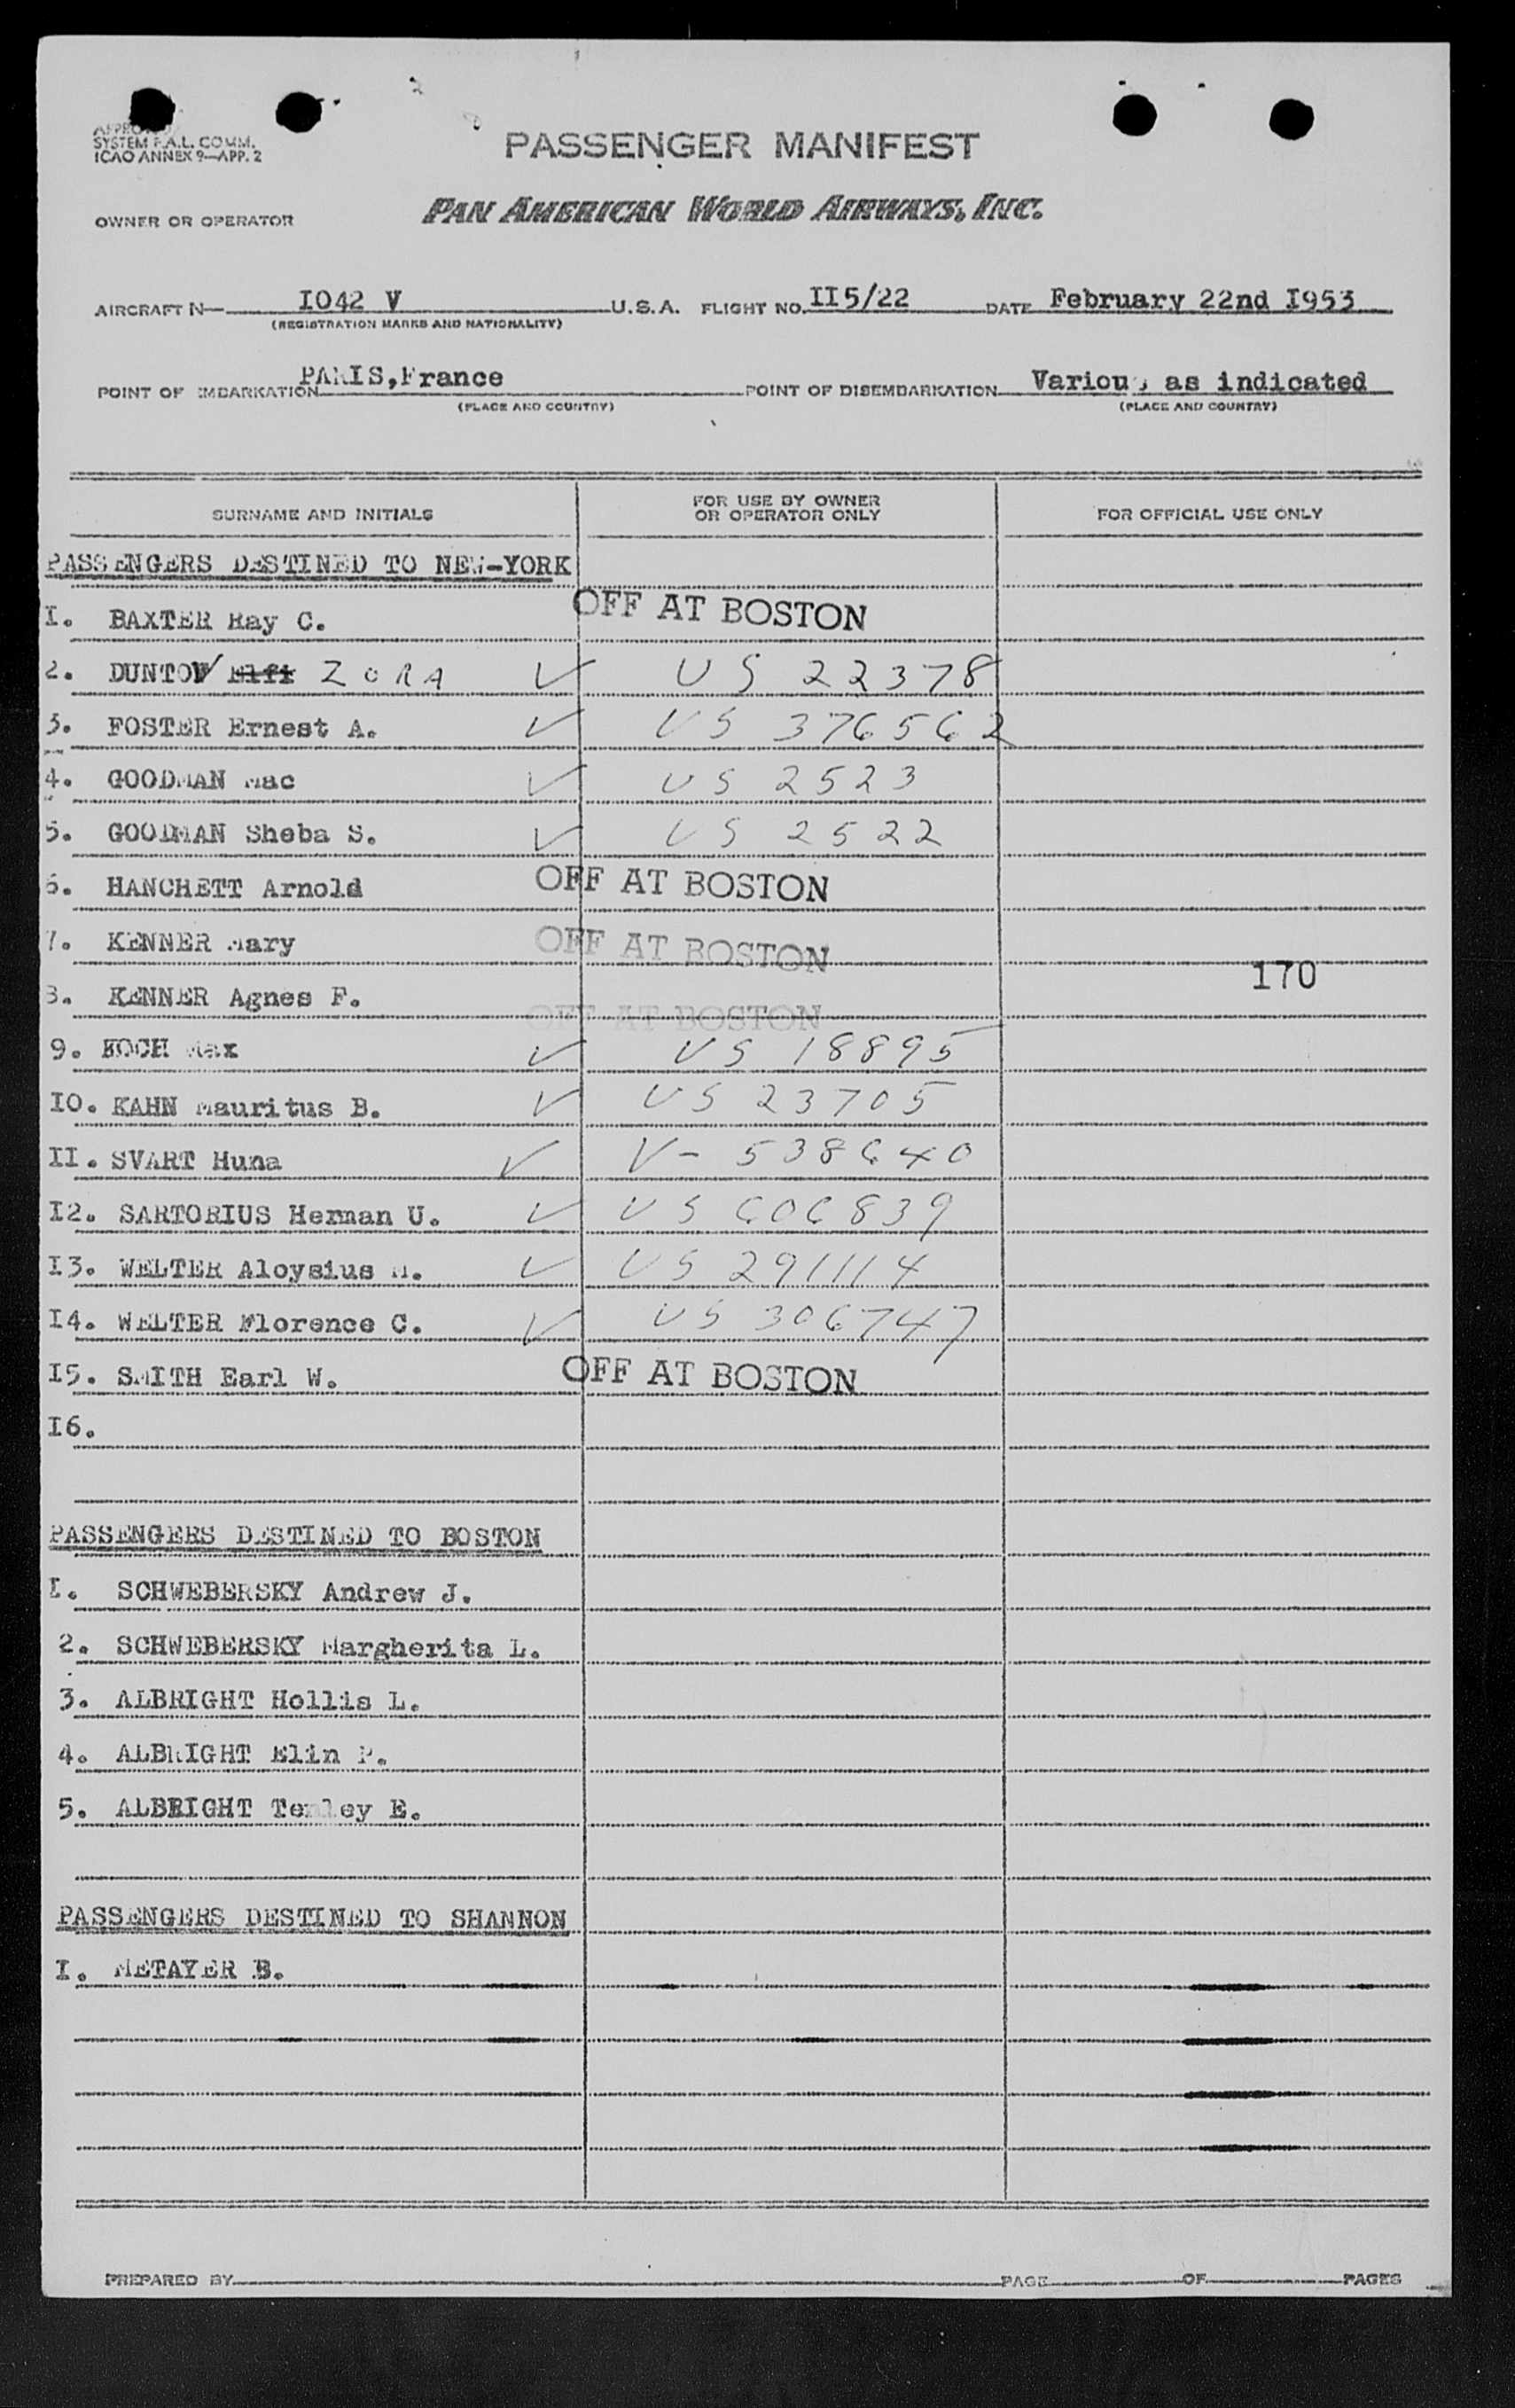 APPROVED
SYSTEM F.A.L. COMM.
ICAO ANNEX 9—APP. 2
PASSENGER MANIFEST
OWNER OR OPERATOR PAN AMERICAN WORLD AIRWAYS, INC.
AIRCRAFT N— I042 V U.S.A. FLIGHT NO. II5/22 DATE February 22nd I953
(REGISTRATION MARKS AND NATIONALITY)
POINT OF EMBARKATION PARIS,France POINT OF DISEMBARKATION Various as indicated
(PLACE AND COUNTRY) (PLACE AND COUNTRY)
SURNAME AND INITIALS FOR USE BY OWNER OR OPERATOR ONLY FOR OFFICIAL USE ONLY
PASSENGERS DESTINED TO NEW-YORK
I. BAXTER Ray C. OFF AT BOSTON
2. DUNTOV Elfi ZORA ✓ US 22378
3. FOSTER Ernest A. ✓ US 376562
4. GOODMAN Mac ✓ US 2523
5. GOODMAN Sheba S. ✓ US 2522
6. HANCHETT Arnold OFF AT BOSTON
7. KENNER Mary OFF AT BOSTON
170
8. KENNER Agnes F. OFF AT BOSTON
9. KOCH Max ✓ US 18895
I0. KAHN Mauritus B. ✓ US 23705
II. SVART Huna ✓ V- 538640
I2. SARTORIUS Herman U. ✓ US 606839
I3. WELTER Aloysius M. ✓ US 291114
I4. WELTER Florence C. ✓ US 306747
I5. SMITH Earl W. OFF AT BOSTON
I6.
PASSENGERS DESTINED TO BOSTON
I. SCHWEBERSKY Andrew J.
2. SCHWEBERSKY Margherita L.
3. ALBRIGHT Hollis L.
4. ALBRIGHT Elin P.
5. ALBRIGHT Tenley E.
PASSENGERS DESTINED TO SHANNON
I. METAYER B.
PREPARED BY PAGE OF PAGES